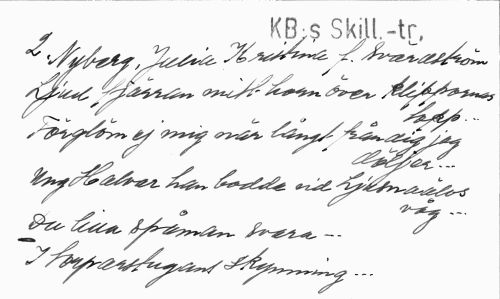 KB:s Skill.-tr.
2. Nyberg, Julia Kristina f. Svärdström
Ljud, fjärran mitt horn över klippornas
topp...
Förglöm ej mig när långt från dig jag
döljer...
Ung Halvar han bodde vid Ljusnaälvs
våg...
Du lilla spåman svara...
I torparstugans skymning...